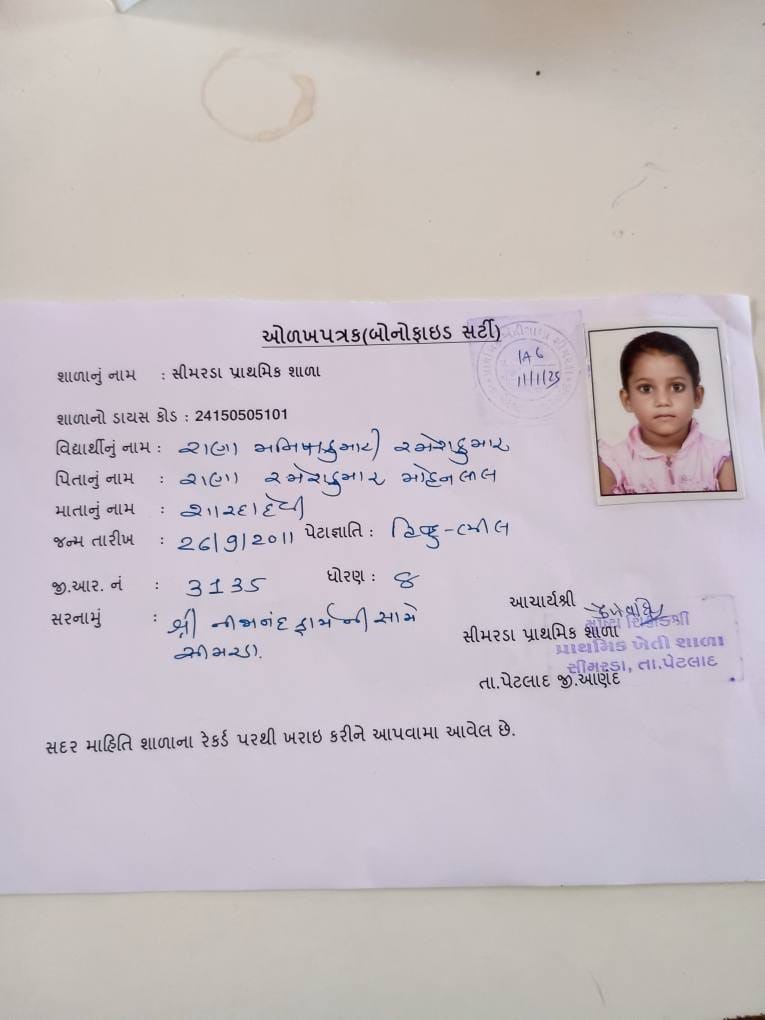 ઓળખપત્રક(બોનોફાઇડ સર્ટી)
IAG
11/1/25
શાળાનું નામ : સીમરડા પ્રાથમિક શાળા
શાળાનો ડાયસ કોડ : 24150505101
વિદ્યાર્થીનું નામ : રાણા રમેશકુમાર
પિતાનું નામ : રાણા રમેશકુમાર મોહનલાલ
માતાનું નામ : શારદાદેવી
જન્મ તારીખ : 26/9/2011 પેટાજ્ઞાતિ : હિન્દુ-ભીલ
જી.આર. નં : 3135 ધોરણ : ૪
સરનામું : શ્રી નીજાનંદ ફાર્મની સામે
સીમરડા.
આચાર્યશ્રી
સીમરડા પ્રાથમિક શાળા
તા.પેટલાદ જી.આણંદ
મુખ્ય શિક્ષકશ્રી
પ્રાથમિક ખેતી શાળા
સીમરડા, તા.પેટલાદ
સદર માહિતિ શાળાના રેકર્ડ પરથી ખરાઇ કરીને આપવામા આવેલ છે.